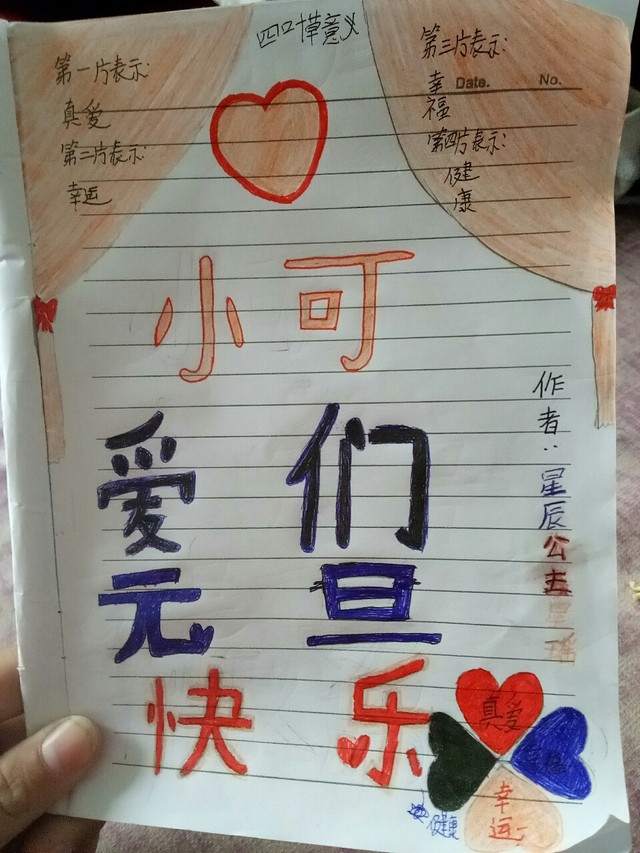 四口草意义
第一片表示:
真爱
第二片表示:
幸运
第三片表示:
幸
福
Date.
No.
第四片表示:
健
康
小可
爱们
元旦
快乐
作者:星辰公主
真爱
幸运
健康